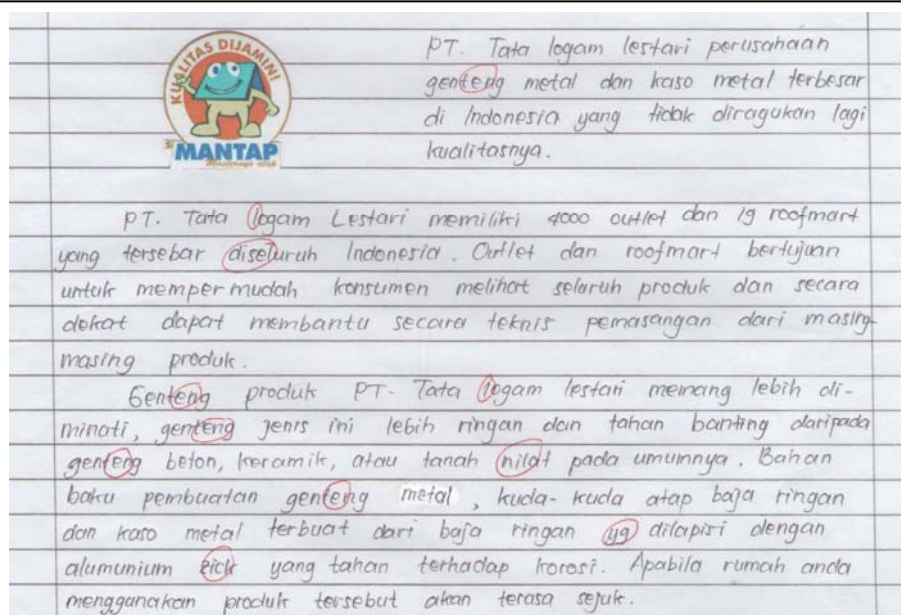 KUALITAS DIJAMIN!
MANTAP
PT. Tata logam lestari perusahaan
genteng metal dan kaso metal terbesar
di Indonesia yang tidak diragukan lagi
kualitasnya.
PT. Tata logam Lestari memiliki 4000 outlet dan 19 roofmart
yang tersebar diseluruh Indonesia. Outlet dan roofmart bertujuan
untuk mempermudah konsumen melihat seluruh produk dan secara
dekat dapat membantu secara teknis pemasangan dari masing-
masing produk.
Genteng produk PT. Tata logam lestari memang lebih di-
minati, genteng jenis ini lebih ringan dan tahan banting daripada
genteng beton, keramik, atau tanah nilat pada umumnya. Bahan
baku pembuatan genteng metal, kuda-kuda atap baja ringan
dan kaso metal terbuat dari baja ringan yg dilapisi dengan
alumunium yang tahan terhadap korosi. Apabila rumah anda
menggunakan produk tersebut akan terasa sejuk.